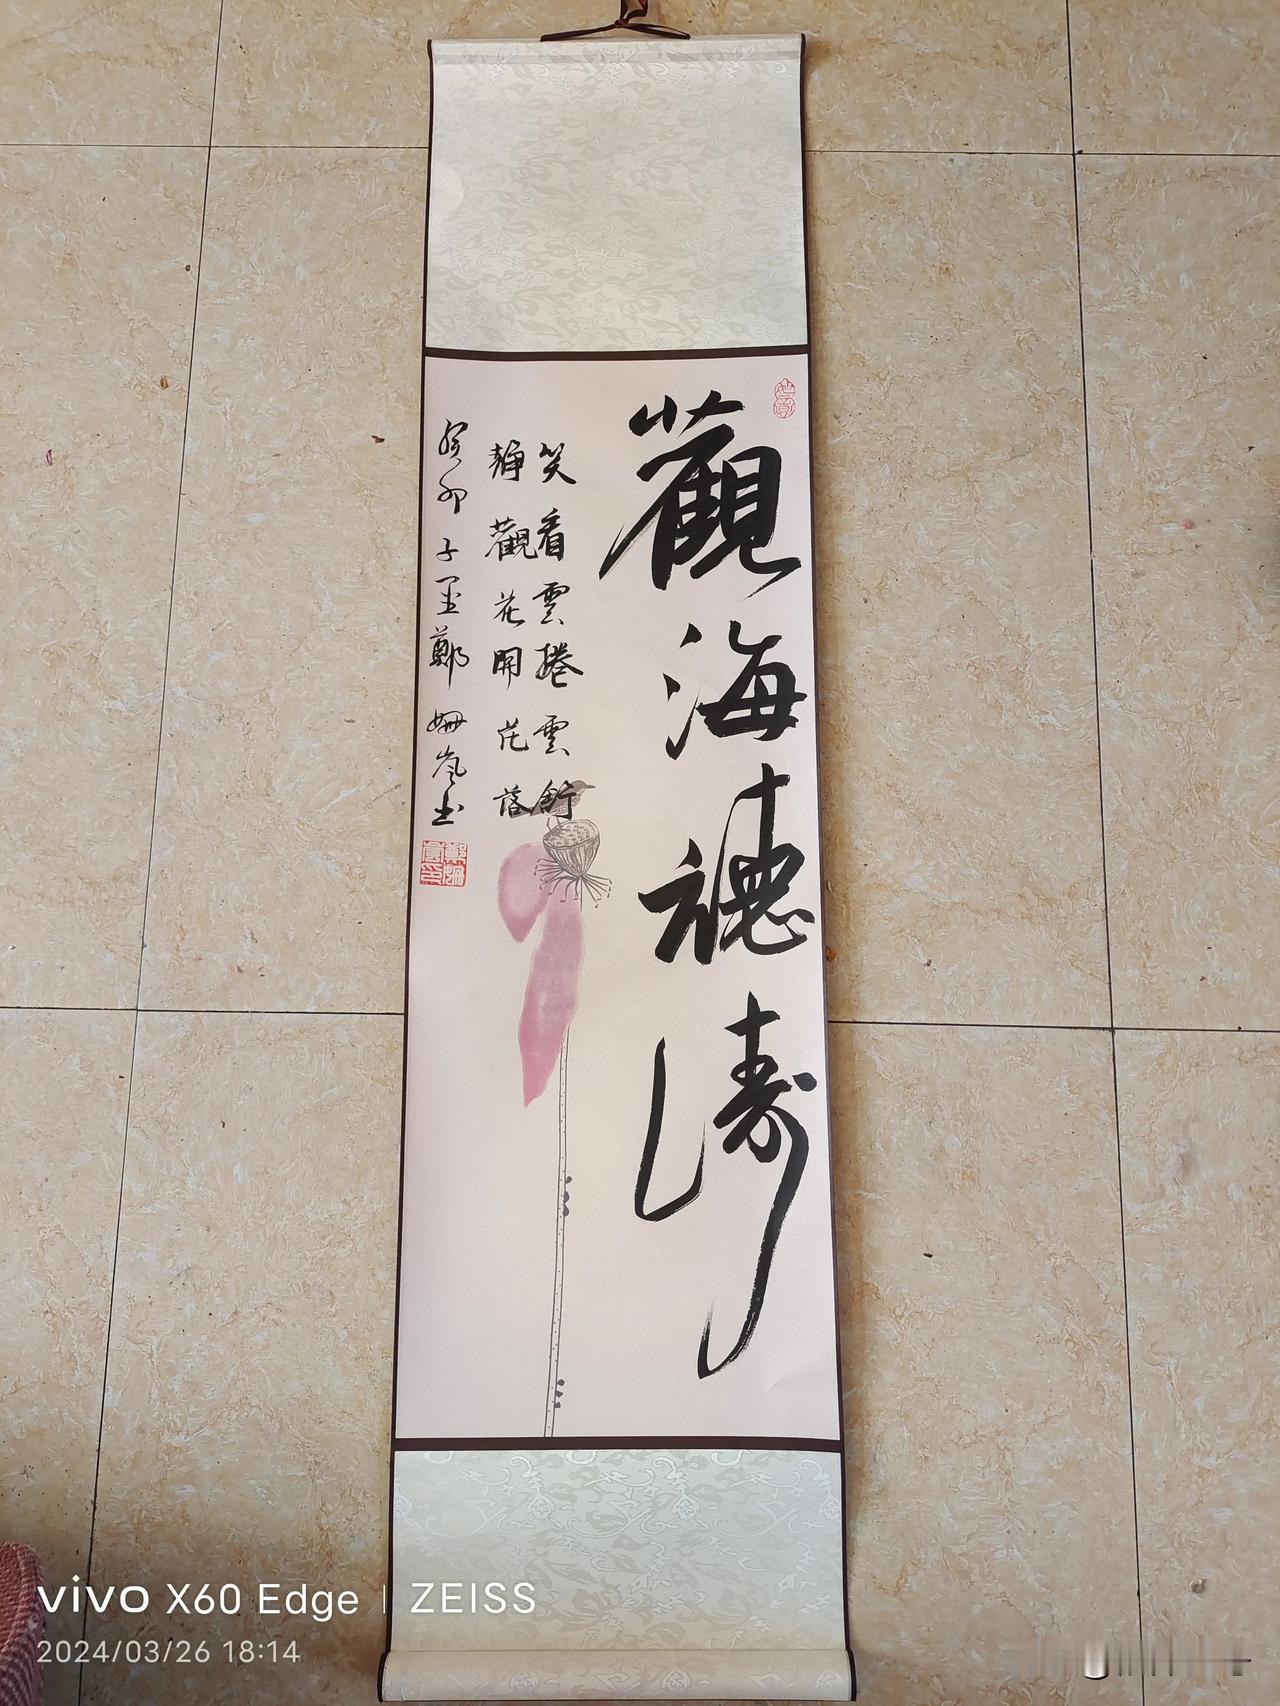 觀海聽濤
笑看雲捲雲舒
靜觀花開花落
癸卯 子墨鄭姍嵐书
vivo X60 Edge | ZEISS
2024/03/26 18:14